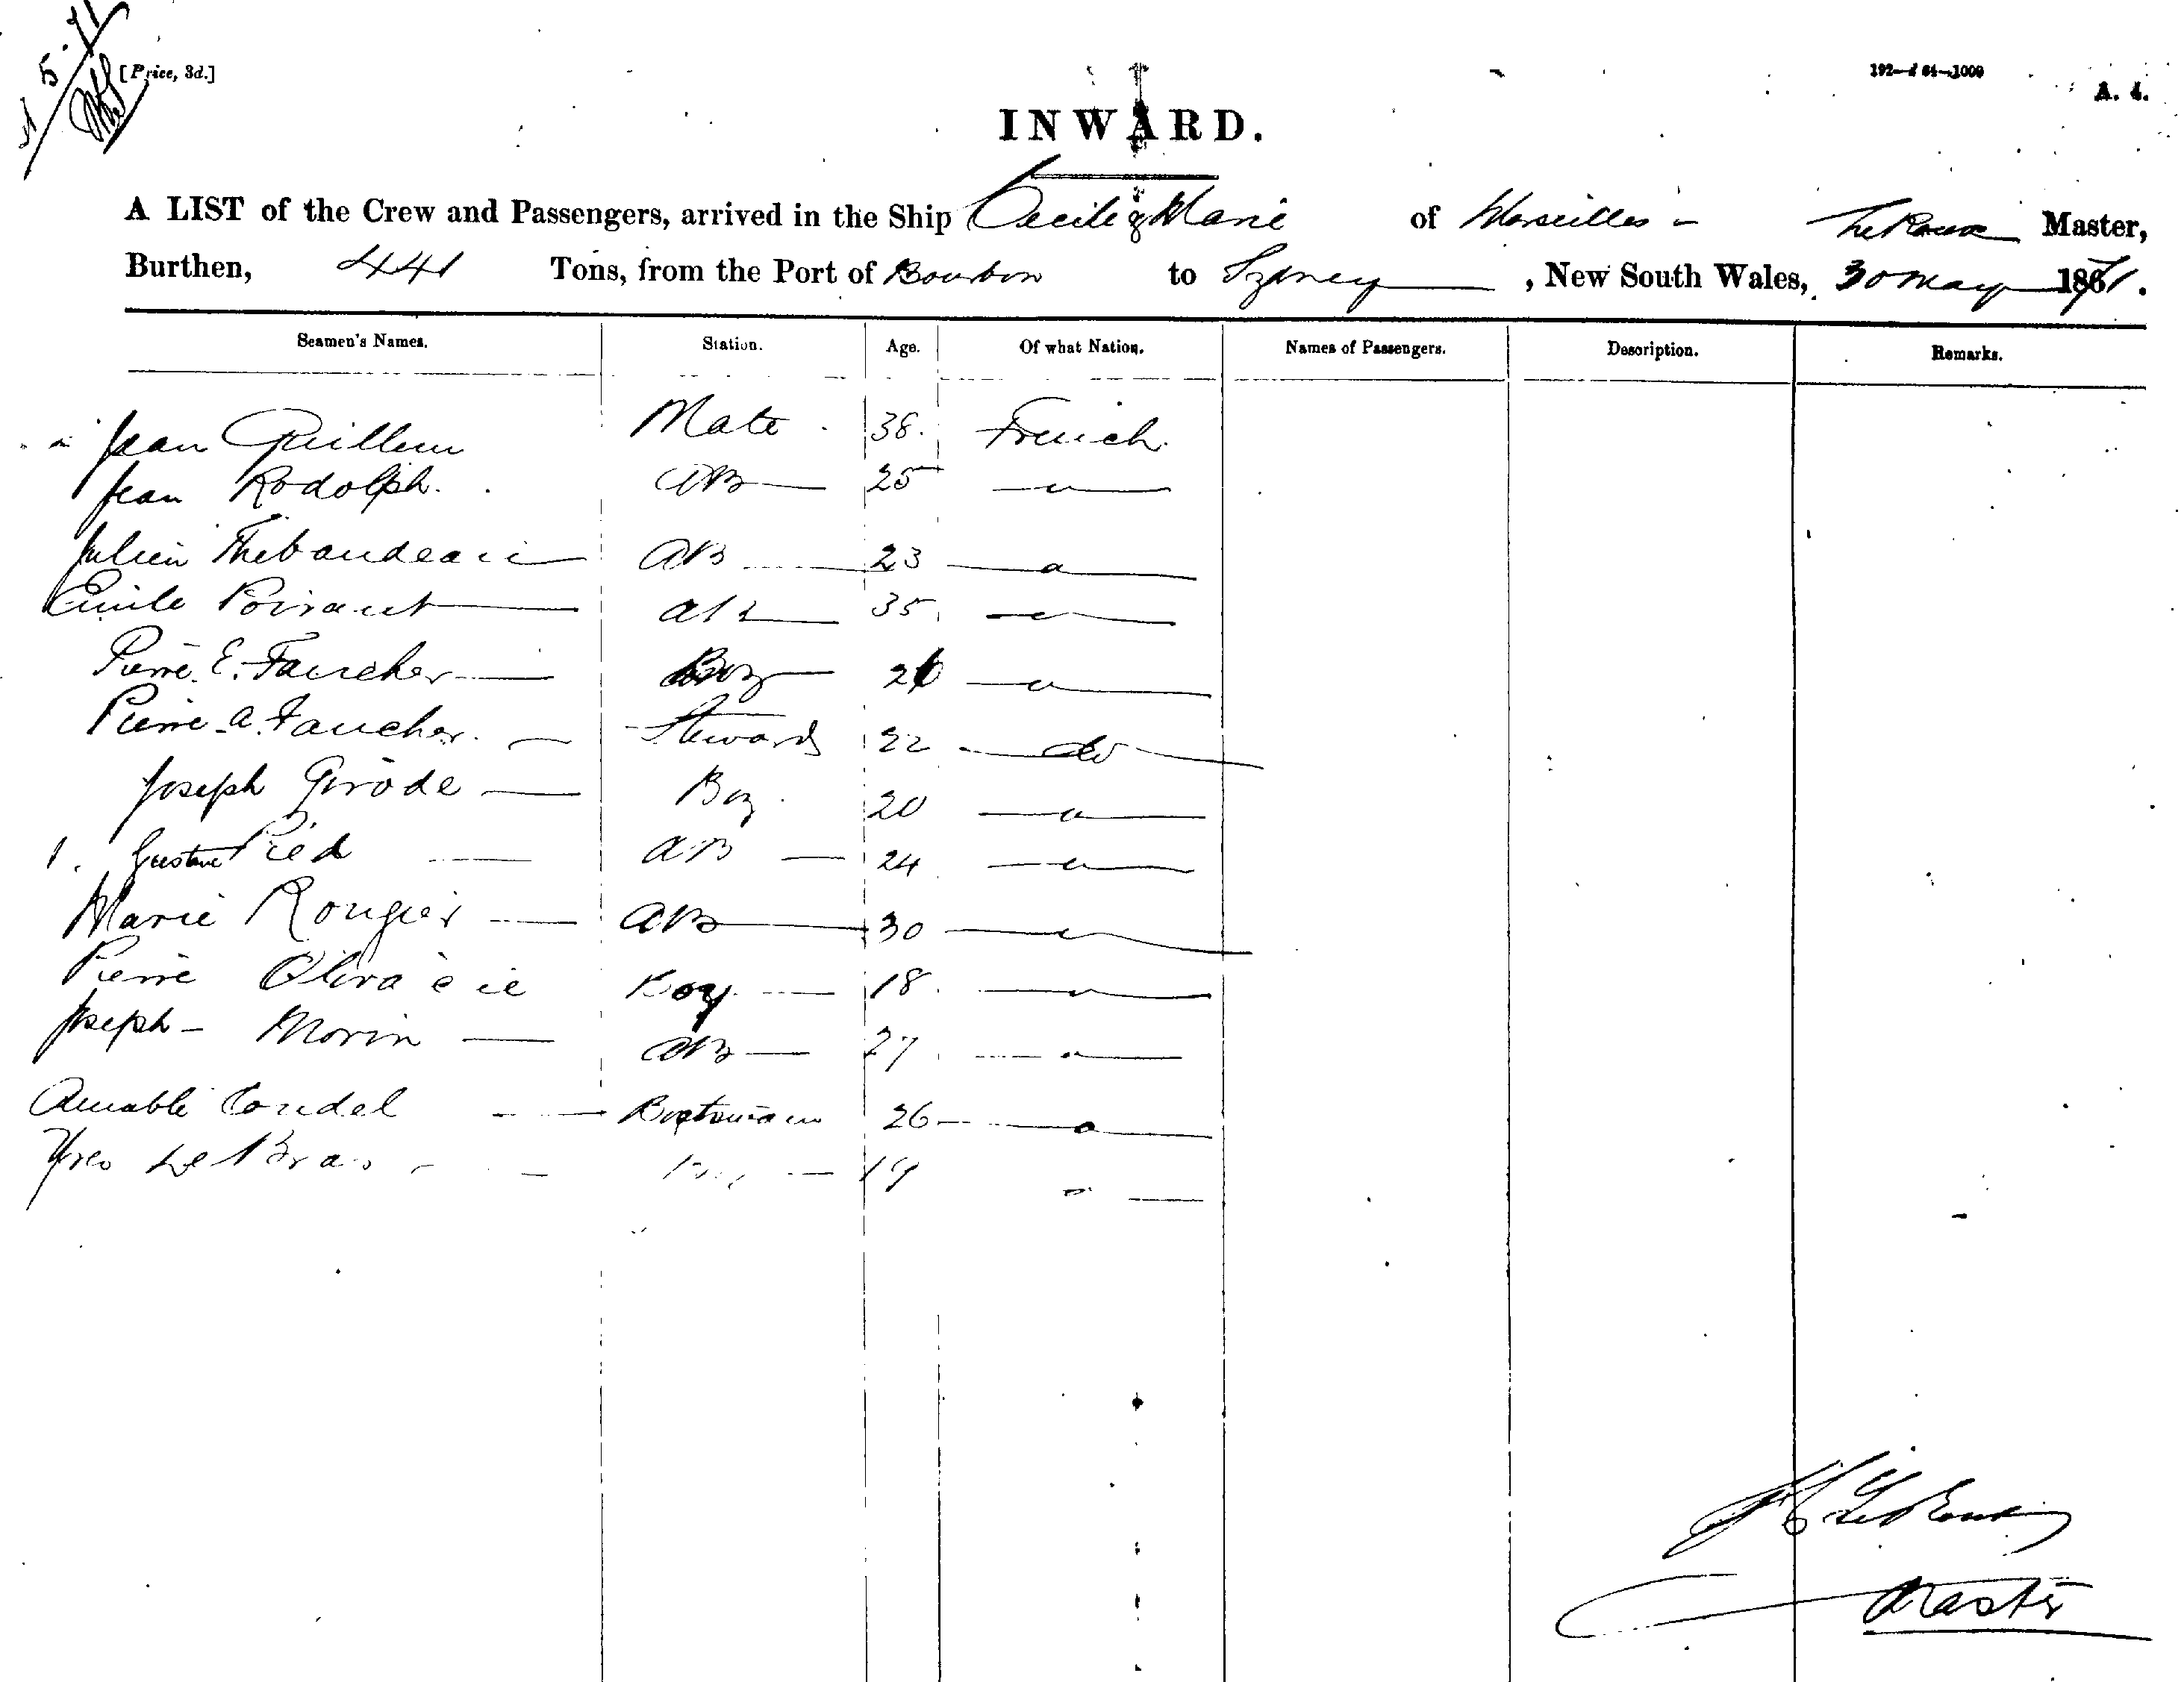 5-71
[Price, 3d.]
192— 64—1000
A. 4.
INWARD.
A LIST of the Crew and Passengers, arrived in the Ship Cecile & Marie of Marseilles - Le Roux Master,
Burthen, 441 Tons, from the Port of Bourbon to Sydney, New South Wales, 30 May 1871.
Seamen's Names. Station. Age. Of what Nation. Names of Passengers. Description. Remarks.
Jean Guillem Mate 38. French
Jean Rodolph. AB 25 "
Julien Thebaudeau AB 23 "
Emile Poiraut AB 35 "
Pierre E. Faucher Boy 
Pierre A. Faucher. Steward 22 do
Joseph Girode Boy 20 "
1. Gustave Pied AB 24 "
Marie Rougier AB 30 "
Pierre Boy 18 "
Joseph - Morin AB 27 "
Amable Coudel Boatswain 26 "
Yves Le Bras Boy 19 "
Le Roux
Master